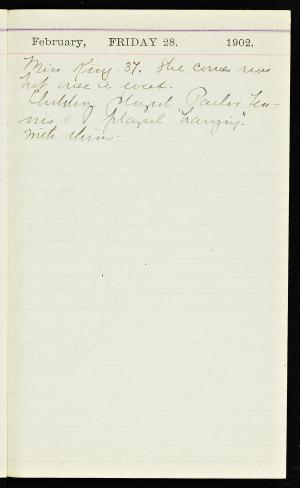 February, FRIDAY 28. 1902.
Miss King. 37. She comes now
but once a week.
Children played Parlor Ten-
nis. I played "hanging".
with them.